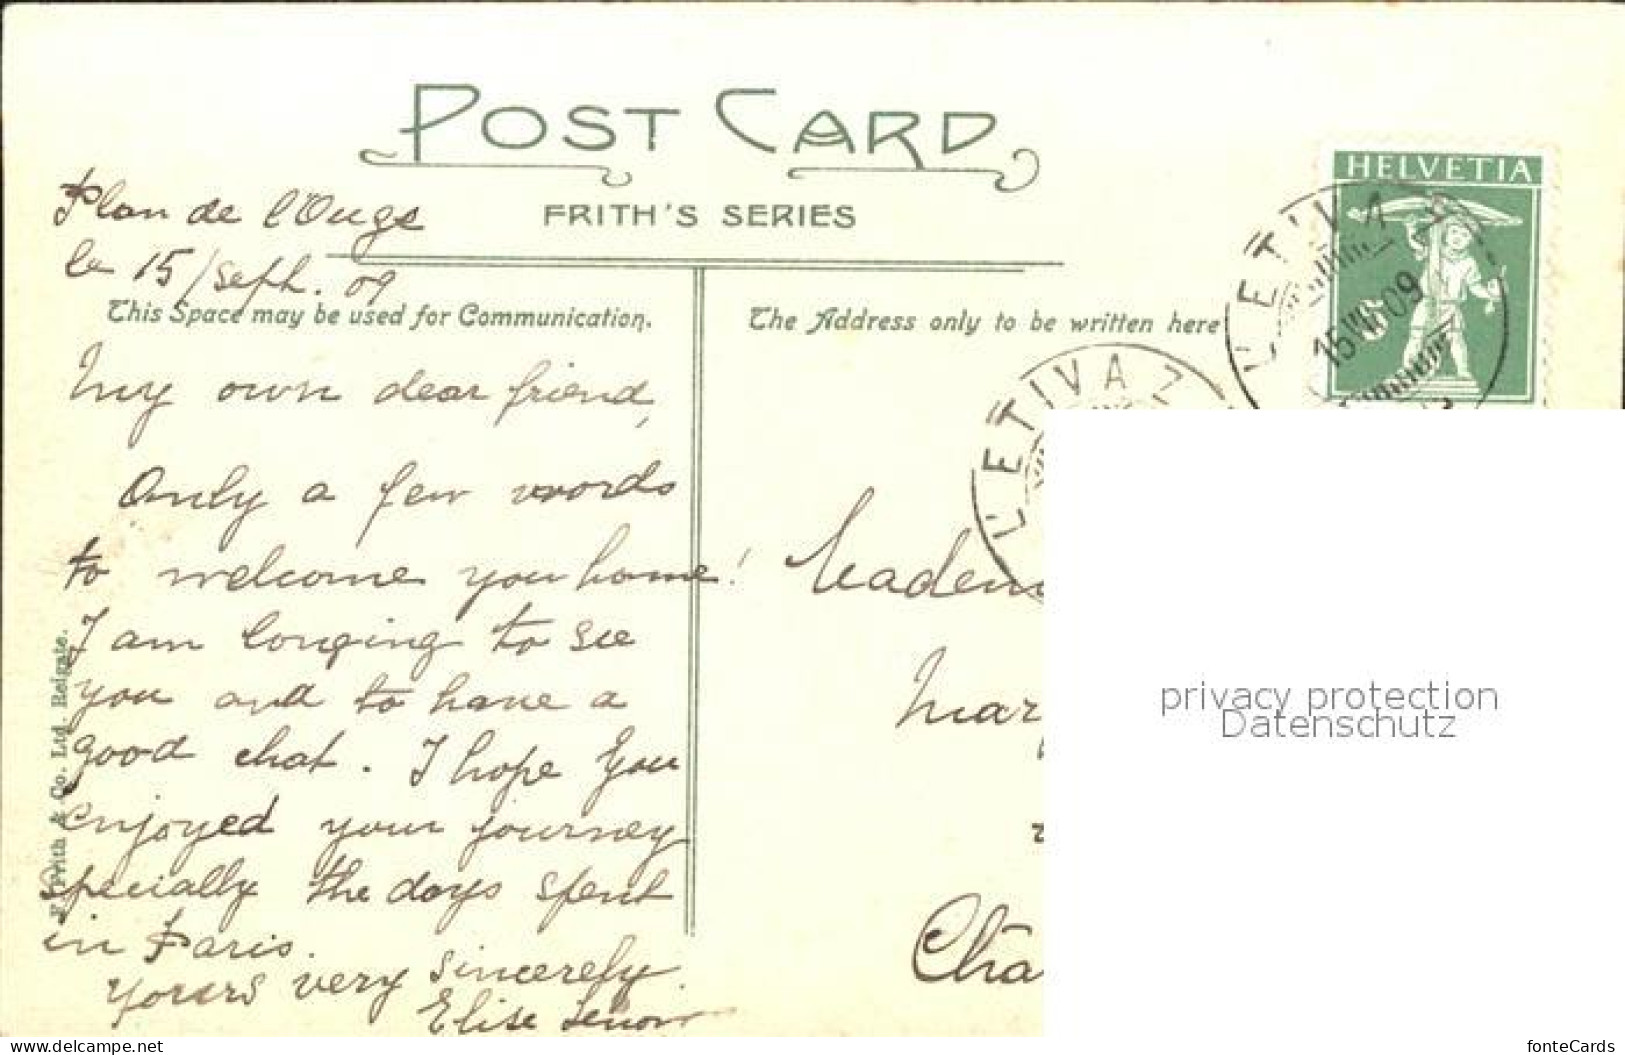 POST CARD
FRITH'S SERIES
HELVETIA
Plan de l'Ouge
le 15/Sept. 09
This Space may be used for Communication.
The Address only to be written here
L'ETIVAZ
15 VIII 09
L'ETIVAZ
My own dear friend,
Only a few words
to welcome you home!
I am longing to see
you and to have a
good chat. I hope you
enjoyed your journey
specially the days spent
in Paris.
Yours very sincerely.
Elise
Mademo
Mar
Châ
F. Frith & Co. Ltd. Reigate.
privacy protection
Datenschutz
www.delcampe.net
fonteCards